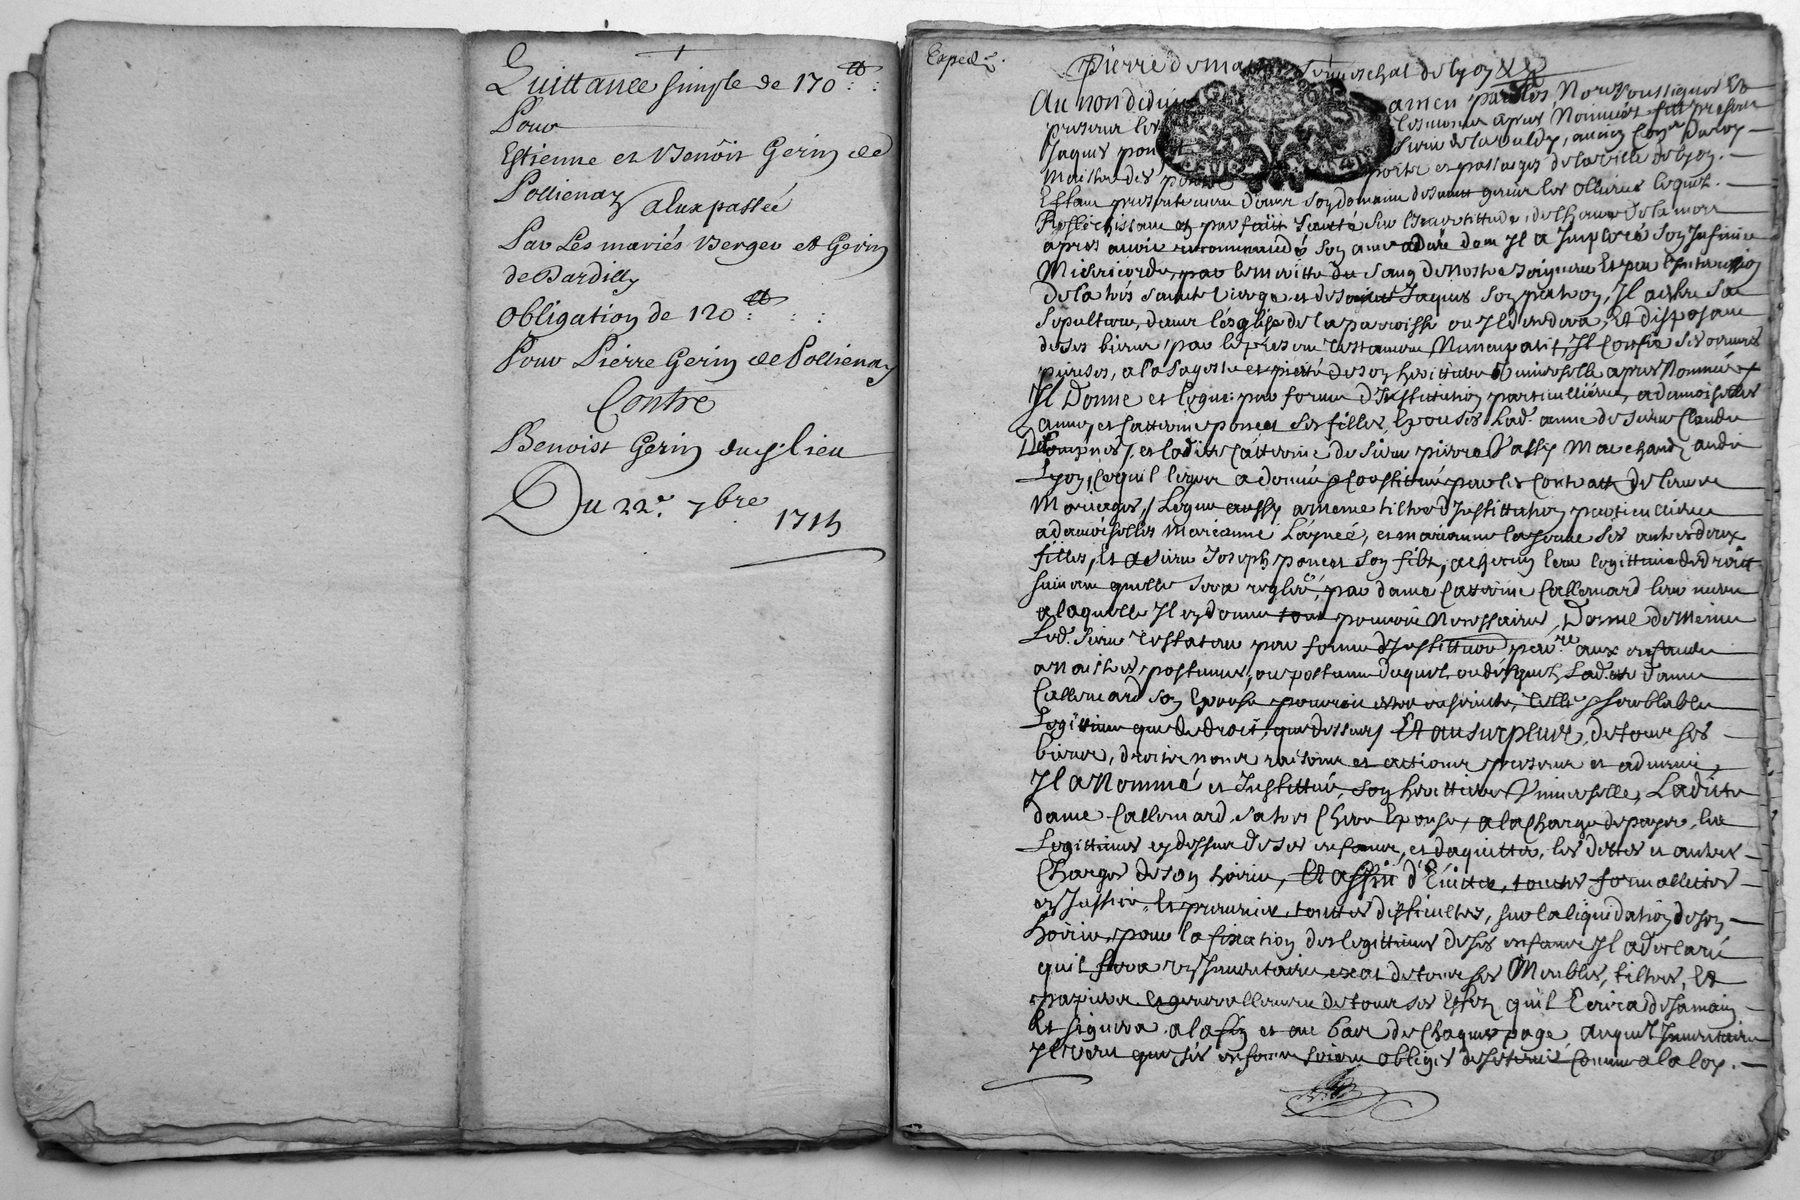 Quittance simple de 170 tt
Pour
Estienne et Benoit Gerin de
Pollienay a eux passée
Par Les mariés Berger et Gerin
de Dardilly
Obligation de 120 tt
Pour Pierre Gerin de Pollienay
Contre
Benoist Gerin dud. lieu
Du 22e. 7bre
1715
Exped.
Pierre de Senneschal de Lyon
Au non de dieu amen par les No.res soussignes Et
presens les tesmoins apres Nommés fut present
Jaques poncet Sieur de
Maistre des ports portes et passages de la ville de Lyon.
Estant presentement dans son domaine lequel
Reflechissant et sur l'incertitude de l'heure de la mort
apres avoir recommandé son ame a dieu dont Il a Imploré son Infinie
Misericorde, par le meritte du sang de Nostre Seigneur Et par l'Intercession
de la tres sainte Vierge et de saint Jaques son patron, Il a esleu sa
sepulture, dans l'esglise de la paroisse ou Il decedera, Et disposant
de ses biens, par le present testament Nuncupatif, Il Confie ses oeuvres
pieuses, a la sagesse et pieté de son herittiere Universelle apres Nommée
Il Donne et legue par forme d'Institution particulliere, a demoiselles
anne, et catterine poncet ses filles, Epouses Lad. anne de sieur Claude
et ladite Catterine de sieur pierre Marchand, aud.
Lyon, Ce qu'il leur a donné & constitué par les Contratt de leurs
Mariages, / Legue aussy a meme tiltre d'Institution particulliere
a demoiselles marianne l'aynée, et marianne la jeune ses autres deux
filles, Et a sieur Joseph poncet son fils, a chacun leur legittime de droit
suivant quelle sera reglée, par dame Catterine Callemard leur mere
a laquelle Il en donne tout pouvoir Necessaire, Donne de Meme
Led. sieur testateur par forme d'Institution par.re aux enfants
a naistre, postumes, ou postume duquel, ou desquels, Lad. dame
Callemard son Epouse pourroit estre enceinte, telle & semblable
Legittime que de droit, que dessus / Et au surplus, de tous ses
biens, droits noms raisons et actions presens et advenir,
Il a Nommé et Institué, son herittiere Universelle, Ladite
dame Callemard, sa tres Chere Epouse, a la Charge de payer, les
Legittimes cy dessus de ses enfants, et d'aquitter, les dettes et autres
Charges de son hoirie, Et affin d'Eviter, toutes formallittes
en Justice, Et prevenir, touttes difficultes, sur la liquidation de son
hoirie, pour la fixation des legittimes de ses enfants Il a declaré
qu'il fera un Inventaire exat de tous ses Meubles, tiltres, Et
papiers Et generallement de tous ses Effets, qu'il Ecrira de sa main,
Et signera a la fin et au bas de Chaque page auquel Inventaire
Il veut que ses enfants soient obligés de se tenir Comme a la loy.